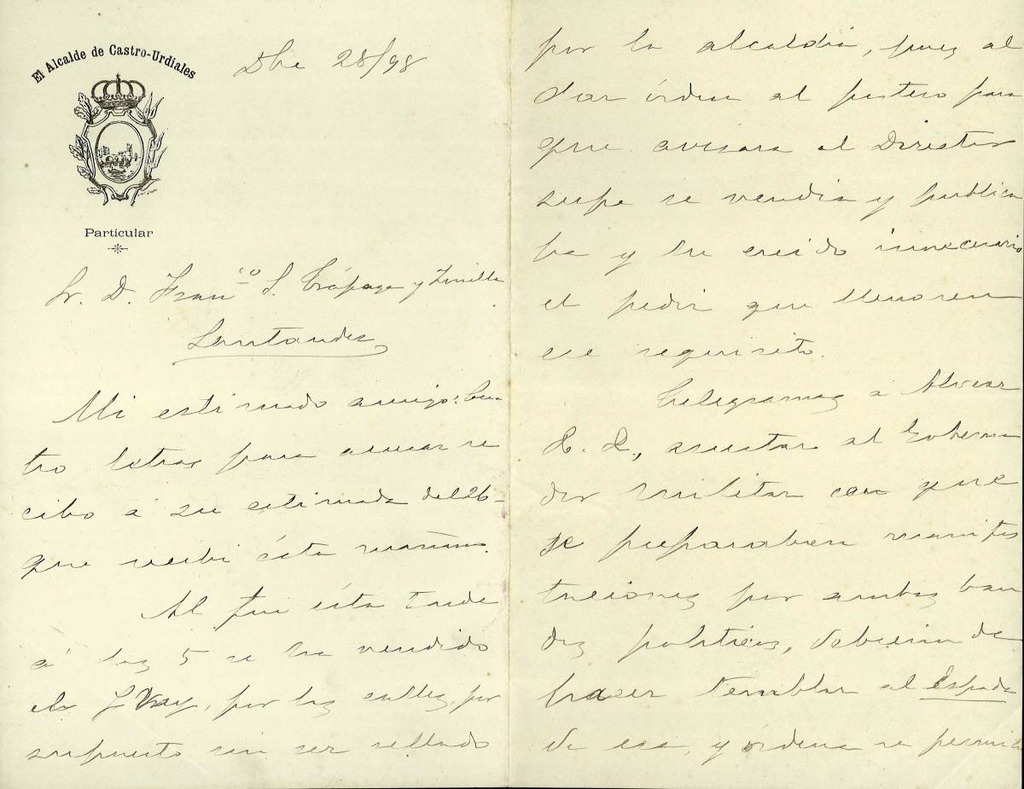 El Alcalde de Castro-Urdiales
Dbe 28/98
Particular
Sr. D. Franco S. Trápaga y Zorrilla
Santander
Mi estimado amigo: Cua
tro letras para acusar re
cibo á su estimada del 26
que recibí ésta mañana.
Al fin ésta tarde
á las 5 se ha vendido
el por las calles, por
supuesto sin ser sellado
por la alcaldía, pues al
dar órden al portero para
que avisara al Director
supe se vendia y publica
ba y he creido innecesario
el pedir que llenaren
ese requisito.
Telegramas a Alvear
asustar al Goberna
dor militar con que
se preparaban manifes
taciones por ambos ban
dos politicos, debieron de
hacer temblar al Espada
de esa, y ordena se permita